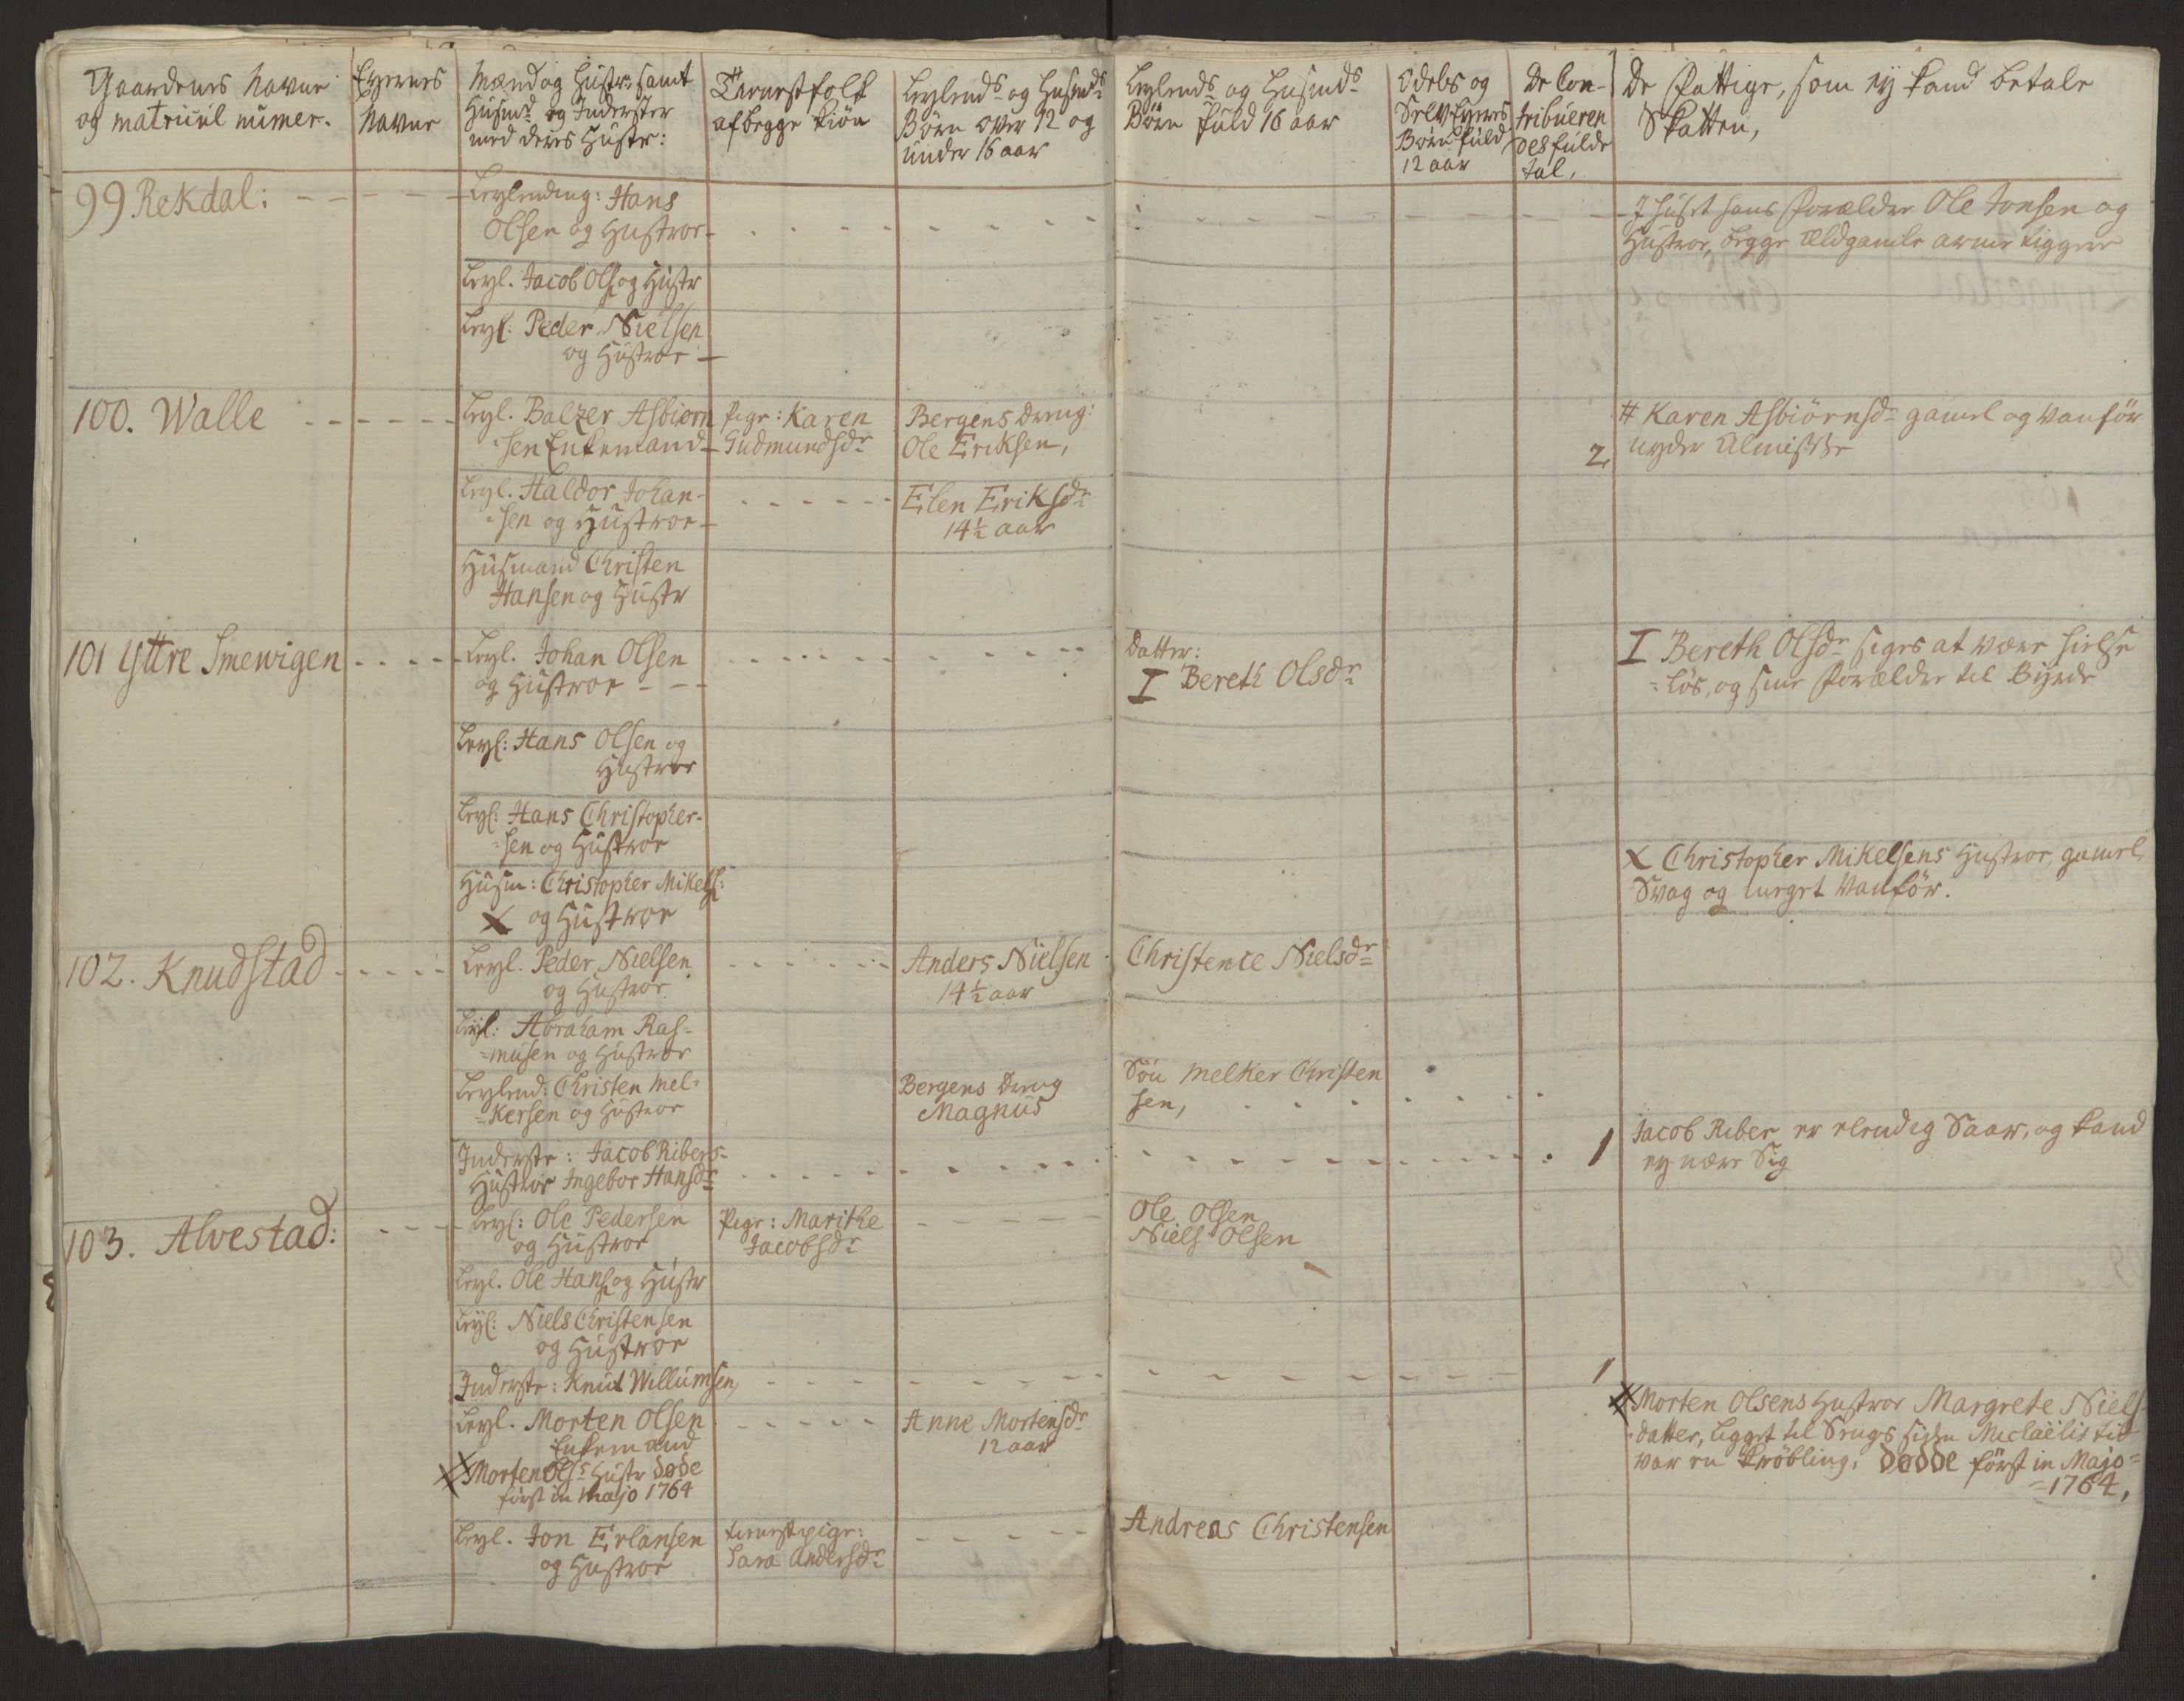 Gaardenes Navne
og matricul numer.
Eyernes
Navne
Mænd og Hustr: samt
Husmd og Inderster
med deres Hustr:
Tienestfolk
af begge Kiön
Leylends og Husmds
Börn over 12 og
under 16 aar
Leylends og Husmds
Börn fuld 16 aar
Odels og
Selv Eyeres
Börn fuld
12 aar
De Con-
tribueren
des fulde
tal,
De Fattige, som ey kand betale
Skatten,
99 Rekdal:
Leylending: Hans
Olsen og Hustroe
I Huset hans Forældre Ole Jonsen og
Hustroe, begge Eldgamle arme tiggere
Leyl. Jacob Ols og Hustr
Leyl: Peder Nielsen
og Hustroe
100. Walle
Leyl. Balzer Asbiørn
sen Enkemand
Pige: Karen
Gudmundsdr
Bergens dreng:
Ole Eriksen,
2,
# Karen Asbiörnsdr gamel og vanför
nyder Almisse
Leyl. Haldor Johan-
=sen og Hustroe
Elen Eriksdr
14½ aar
Husmand Christen
Hansen og Hustr
101 Yttre Smewigen
Leyl. Johan Olsen
og Hustroe
Datter:
I Bereth Olsdr
I Bereth Olsdr siges at være hielpe
=lös, og sine Forældre til Byrde
Leyl: Hans Olsen og
Hustroe
Leyl: Hans Christopher-
=sen og Hustroe
Husm: Christopher Mikels:
X og Hustroe
X Christopher Mikelsens Hustroe, gamel,
Svag og meget Vanför.
102. Knudstad
Leyl. Peder Nielsen
og Hustroe
Anders Nielsen
14½ aar
Christence Nielsdr
Leyl: Abraham Ras-
=musen og Hustroe
Leylend: Christen Mel-
=kersen og Hustroe
Bergens dreng
Magnus
Sön Melker Christen
sen,
Inderste: Jacob Ribers
Hustroe Ingebor Hansdr
1
Jacob Riber er elendig Saar, og kand
ey nære Sig
103. Alvestad:
Leyl: Ole Pedersen
og Hustroe
Pige: Marithe
Jacobsdr
Ole Olsen
Niels Olsen
Leyl. Ole Hans og Hustr
Leyl: Niels Christensen
og Hustroe
Inderste: Knut Willumsen,
1
Leyl. Morten Olsen
Enkemand
Anne Mortensdr
12 aar
X Morten Ols: Hustr døde
først in Majo 1764
X Morten Olsens Hustroe Margrete Niels
datter, ligget til Sengs siden Michaëlis tid
var en Kröbling, Dødde först in Majo=
=1764,
Leyl. Jon Erlansen
og Hustroe
tienestpige:
Sara Andersdr
Andreas Christensen